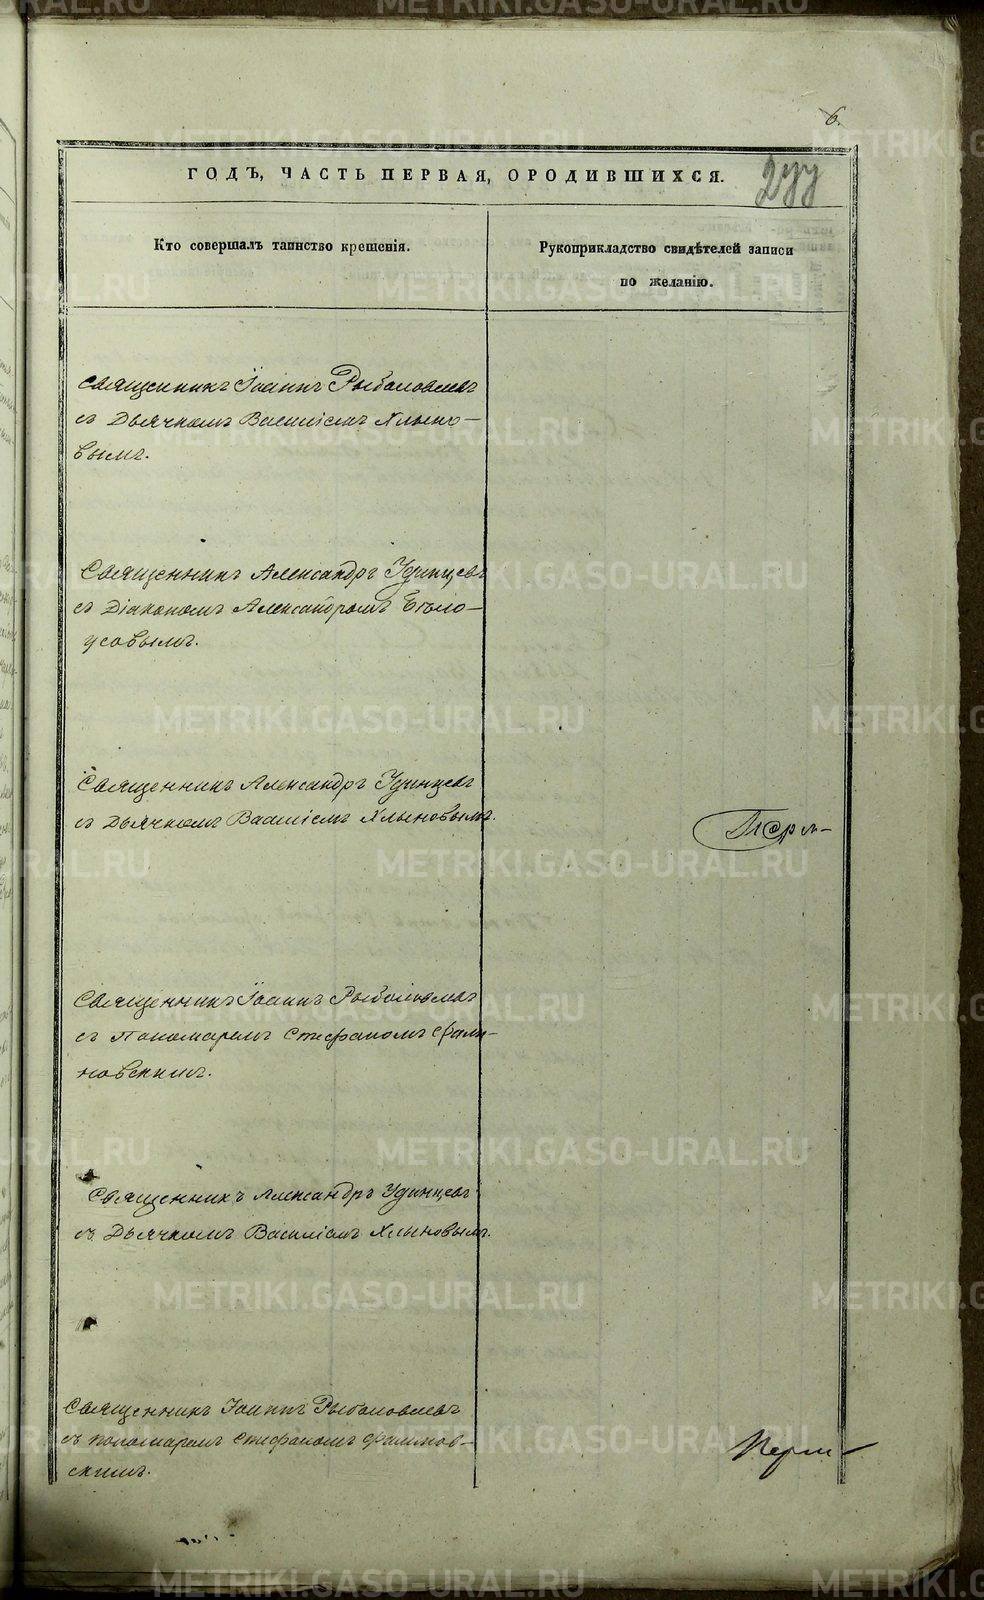 6.
ГОДЪ, ЧАСТЬ ПЕРВАЯ, О РОДИВШИХСЯ.
277
Кто совершалъ таинство крещенія.
Рукоприкладство свидѣтелей записи
по желанію.
Священникъ Іоаннъ Рыболовлевъ
съ Дьячкомъ Василіемъ Хлыно-
вымъ.
Священникъ Александръ Удинцевъ
съ Діакономъ Александромъ Бѣло-
усовымъ.
Священникъ Александръ Удинцевъ
съ Дьячкомъ Василіемъ Хлыновымъ.
Священникъ Іоаннъ Рыболовлевъ
съ Пономаремъ Стефаномъ
новскимъ.
Священникъ Александръ Удинцевъ
съ Дьячкомъ Василіемъ Хлыновымъ.
Священникъ Іоаннъ Рыболовлевъ
съ пономаремъ Стефаномъ
скимъ.
METRIKI.GASO-URAL.RU